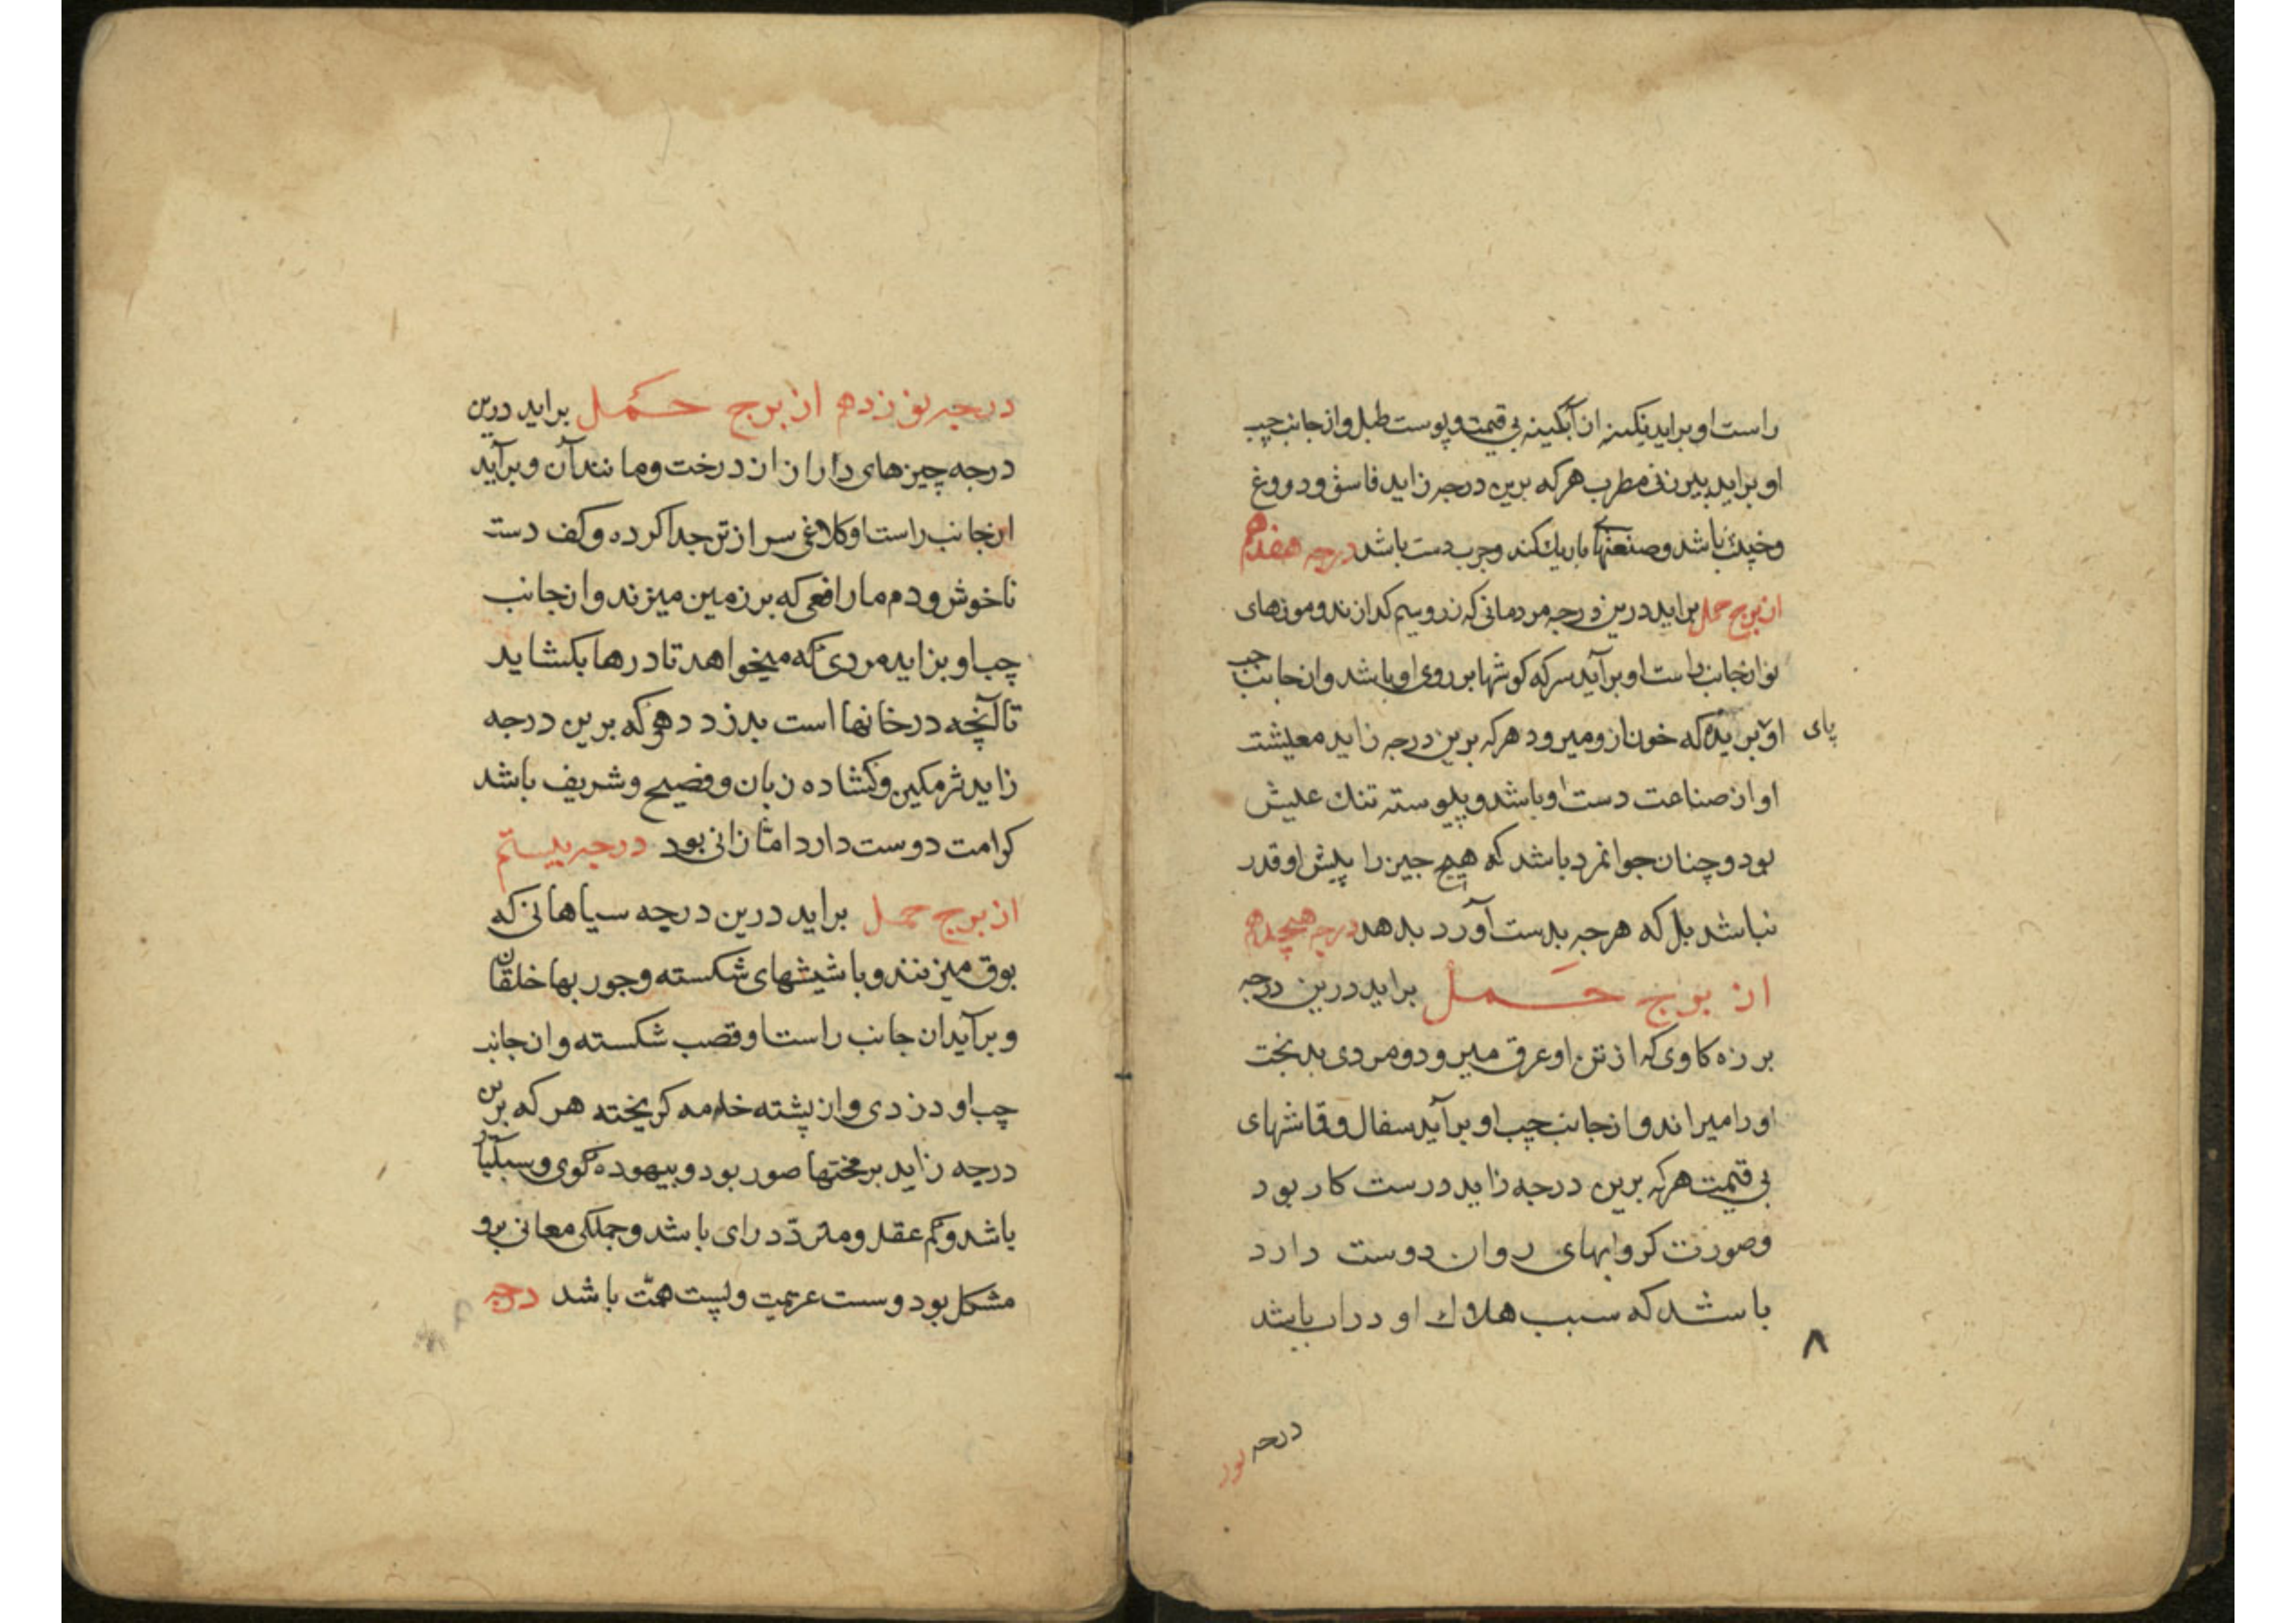 راست او برآید نکینه از آبکینه بی قیمت و پوست طبل و از جانب چپ
او براید پیر زنی مطرب هر که برین درجه زاید فاسق و دروغ
و خبیث باشد و صنعتهای باریک کند و چرب دست باشد درجه هفدهم
از برج حمل براید درین درجه مردمانی که زر و سیم کدازند و موزهای
نو از جانب راست او برآید سر که کوشها بر روی او باشد و از جانب چپ
او بریده که خون ازو میرود هر که برین درجه زاید معیشت
پای
او از صناعت دست او باشد و پیوسته تنک عیش
بود و چنان جوانمرد باشد که هیچ چیز را پیش او قدر
نباشد بل که هر چه بدست آورد بدهد درجه هیجدهم
از برج حمل براید درین درجه
برزه کاوی که از تن او عرق میرود و مردی بدبخت
او را میراند و از جانب چپ او برآید سفال و قماشهای
بی قیمت هر که برین درجه زاید درست کار بود
و صورت کر و ابهای روان دوست دارد
باشد که سبب هلاک او دران باشد
۸
درجه نوز
درجه نوزدهم از برج حمل براید درین
درجه چیزهای داران از درخت و مانند آن و برآید
از جانب راست او کلاغی سر از تن جدا کرده و کف دست
ناخوش و دم مار افعی که بر زمین میزند و از جانب
چپ او بزاید مردی که میخواهد تا درها بکشاید
تا آنچه در خانها است بدزدد هر که برین درجه
زاید شرمکین و کشاده زبان و فصیح و شریف باشد
کرامت دوست دارد اما زانی بود درجه بیستم
از برج حمل براید درین درجه سیاهانی که
بوق میزنند و با شیشهای شکسته و جوربها خلقان
و برآید از جانب راست او قصب شکسته و از جانب
چپ او دزدی و از پشته خامه کریخته هر که برین
درجه زاید بر محنتها صبور بود و بیهوده کوی و سبکبار
باشد و کم عقل و متردد رای باشد و جملکی معانی برو
مشکل بود و سست عزیمت و پست همت باشد درجه